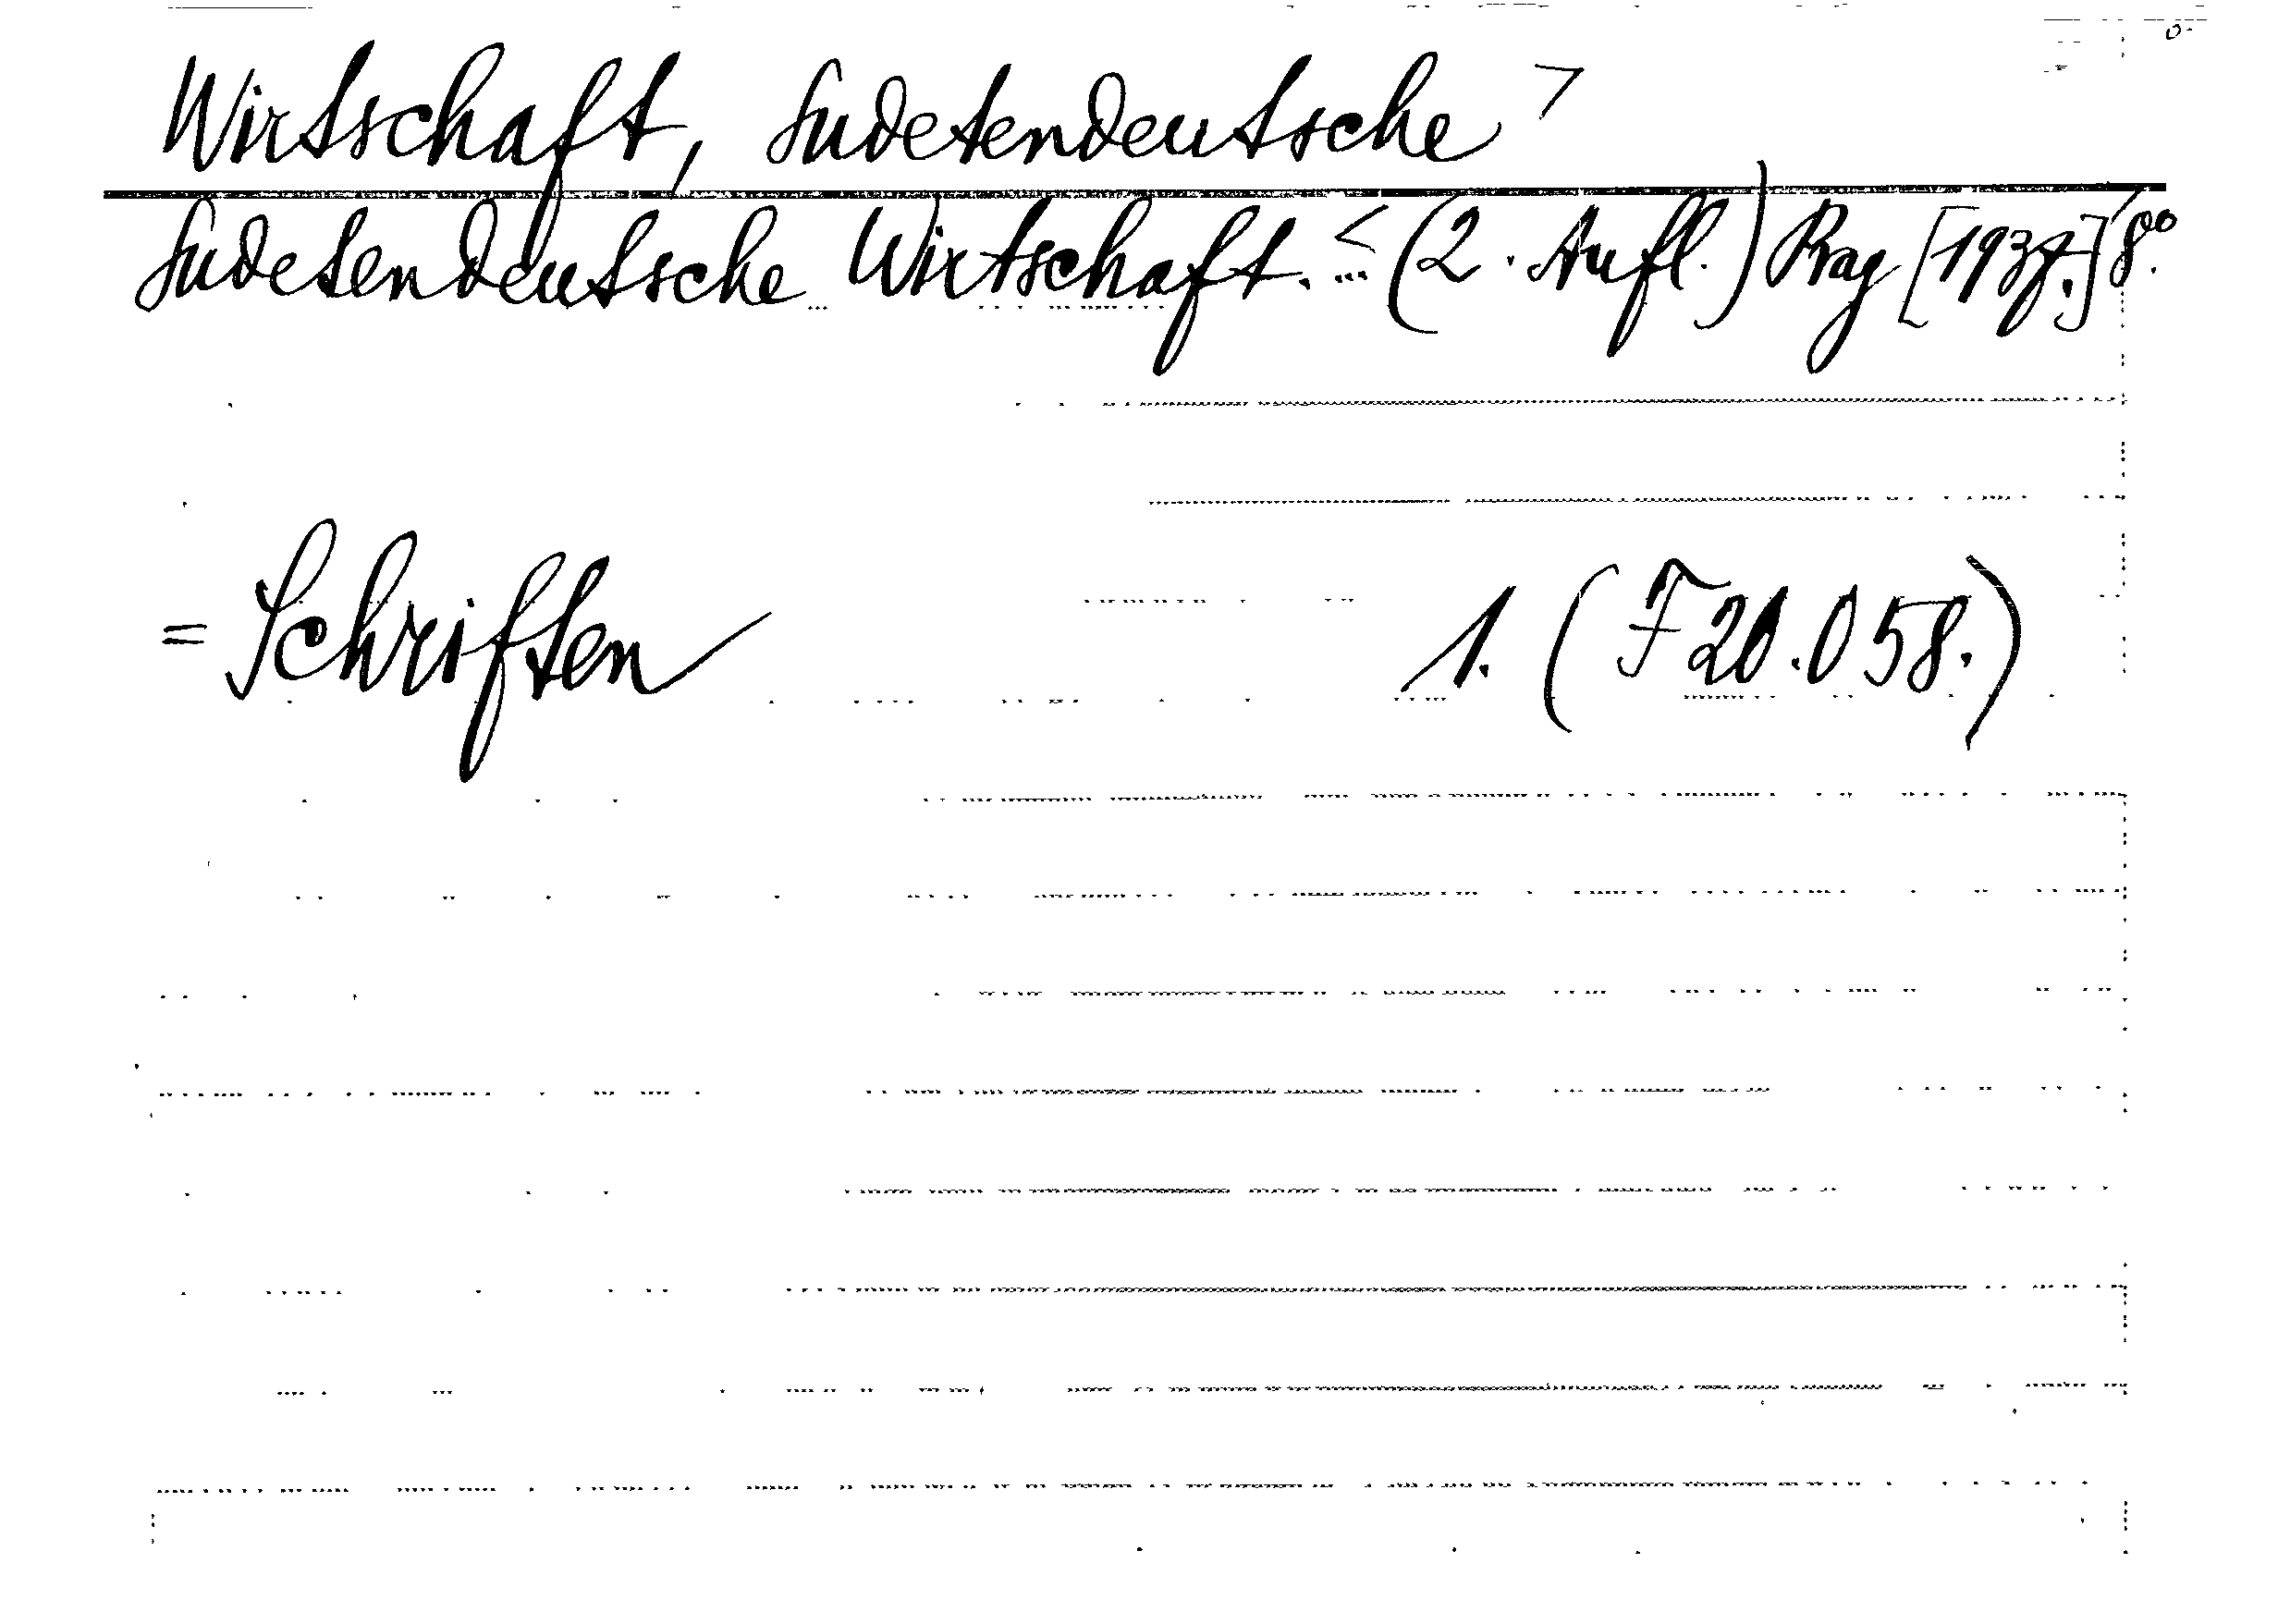 Wirtschaft, Sudetendeutsche >
Sudetendeutsche Wirtschaft. < (2. Aufl.) Prag [1937.] 8°.
= Schriften 1. (F 20.058.)